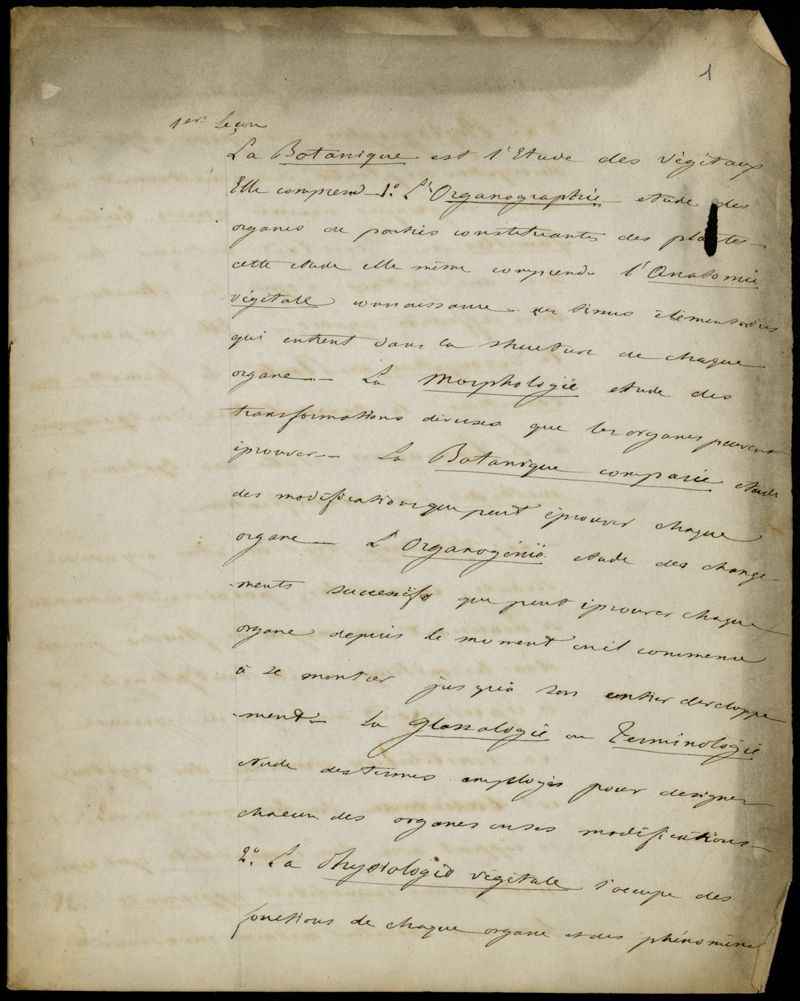 1
1er Leçon
La Botanique est l'Etude des Végétaux
Elle comprend 1º. L'Organographie etude des
organes ou parties constituantes des plantes
cette etude elle même comprend l'Anatomie
végétale connaissance des tissus élémentaires
qui entrent dans la structure de chaque
organe — La Morphologie etude des
transformations diverses que les organes peuvent
éprouver — La Botanique comparée etude
des modifications que peut éprouver chaque
organe — L'Organogénie etude des change-
ments successifs que peut éprouver chaque
organe depuis le moment où il commence
à se montrer jusqu'à son entier developpe-
ment — La Glossologie ou Terminologie
etude des termes employés pour designer
chacun des organes et ses modifications —
2º. La Physiologie végétale s'occupe des
fonctions de chaque organe et des phénomènes